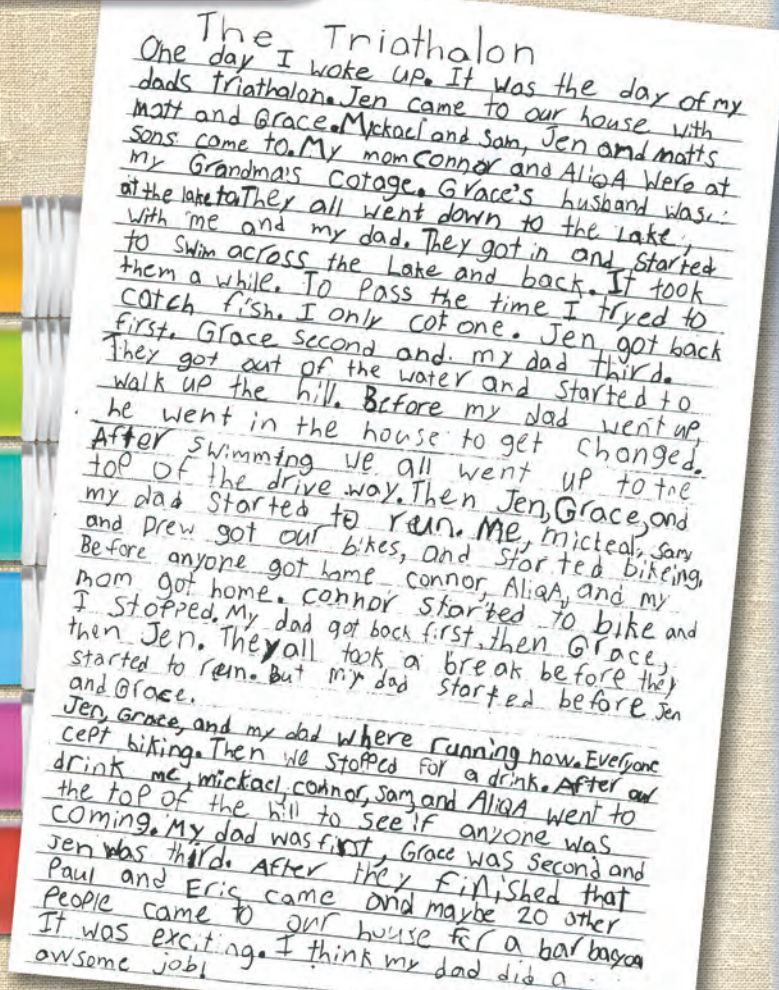 The Triathalon
One day I woke up. It was the day of my
dads triathalon. Jen came to our house with
matt and Grace. Mickael and Sam, Jen and matts
sons come to. My mom Connor and AliQA Were at
my Grandma's cotage. Grace's husband was
at the lake to They all went down to the Lake,
with me and my dad. They got in and started
to swim across the Lake and back. It took
them a while. To pass the time I tryed to
catch fish. I only cot one. Jen got back
first. Grace second and my dad third.
They got out of the water and started to
walk up the hill. Before my dad went up,
he went in the house to get changed.
After swimming we all went up to the
top of the drive way. Then Jen, Grace, and
my dad started to run. Me, micteal, Sam
and Drew got our bikes, and started bikeing,
Before anyone got home connor, AliQA, and my
mom got home. connor started to bike and
I stopped. My dad got back first, then Grace,
then Jen. They all took a break before they
started to run. But my dad started before Jen
and Grace.
Jen, Grace, and my dad where running now. Everyone
cept biking. Then we stopped for a drink. After our
drink me, mickael, connor, Sam, and AliQA went to
the top of the hill to see if anyone was
coming. My dad was first, Grace was second and
Jen was third. After they finished that
Paul and Eric came and maybe 20 other
People came to our house for a
It was exciting. I think my dad did a
awsome job!